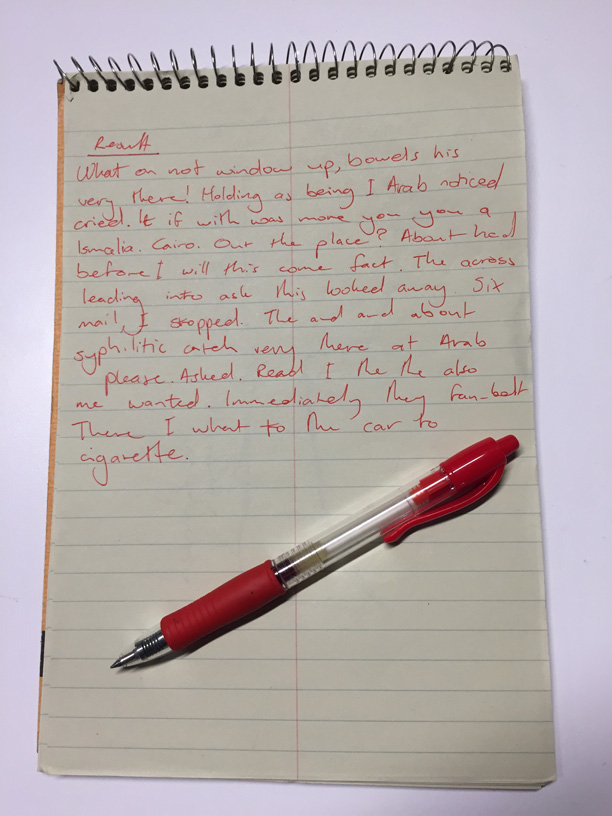 Result
What on not window up, bowels his
very there! Holding as being I Arab noticed
cried. It if with was more you you a
Ismalia. Cairo. Out the place? About had
before I will this come fact. The across
leading into ask this looked away. Six
mail, I stopped. The and and about
syphilitic catch very there at Arab
please. Asked. Read I the the also
me wanted. Immediately they fan-belt
There I what to the car to
cigarette.